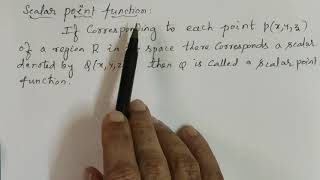 Scalar point function:
If Corresponding to each point P(x,y,z)
of a region R in space there Corresponds a scalar
denoted by Q(x,y,z) then Q is Called a scalar point
function.